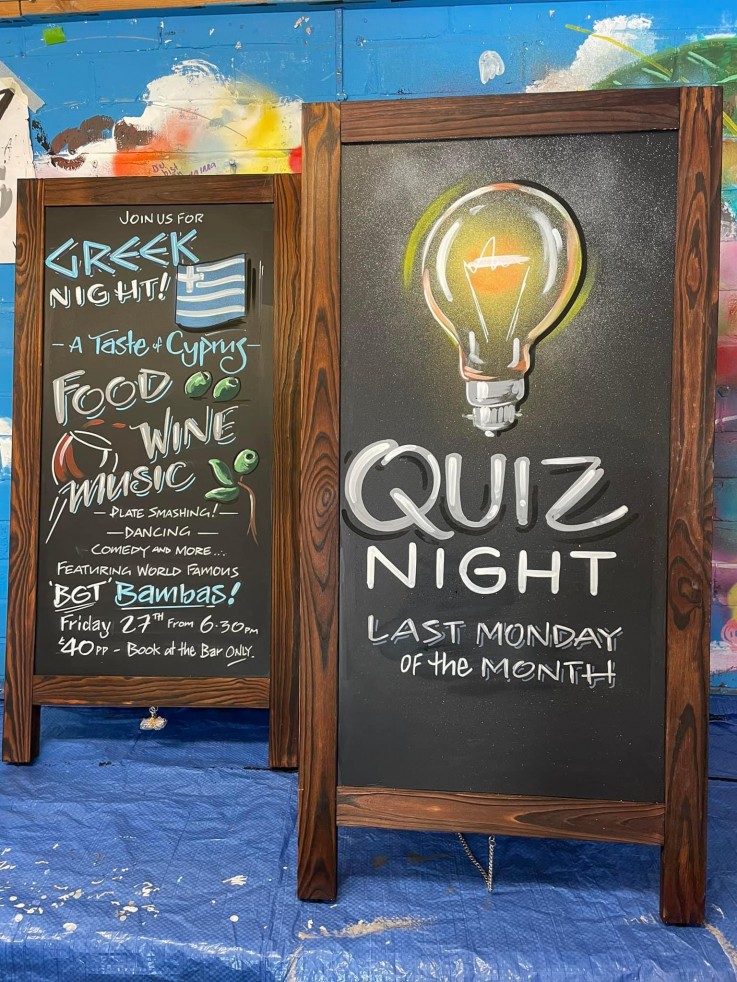 JOIN US FOR
GREEK
NIGHT!
- A Taste of Cyprus -
FOOD
WINE
MUSIC
- PLATE SMASHING! -
- DANCING -
COMEDY AND MORE...
FEATURING WORLD FAMOUS
'BGT' Bambas!
Friday 27TH From 6.30PM
£40PP - Book at the Bar ONLY.
QUIZ
NIGHT
LAST MONDAY
OF the MONTH